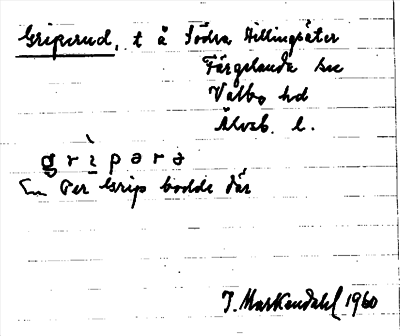 Gripsrud, t å Södra Hillingsäter
Färgelanda sn
Valbo hd
Älvsb. l.
grìpərə
En Per Grip bodde där
J. Markendahl 1960